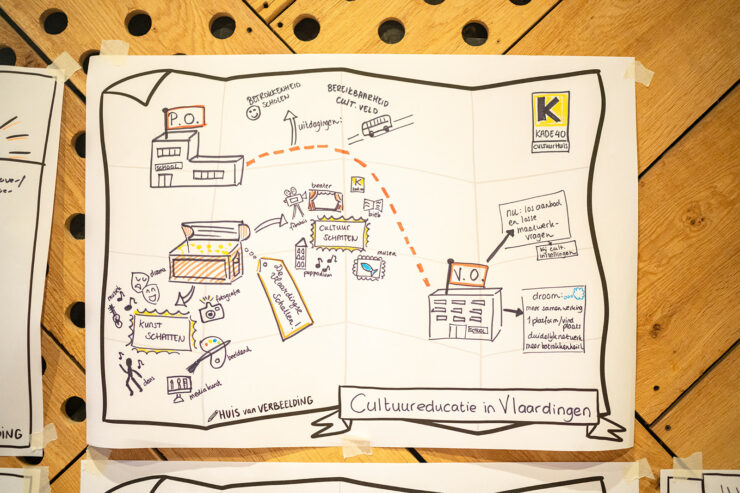 BETROKKENHEID
SCHOLEN
BEREIKBAARHEID
CULT. VELD
uitdagingen:
P.O.
SCHOOL
K
KADE40
CULTUURHUIS
theater
bieb
CULTUUR
SCHATTEN
musea
poppodium
De
Vlaardingse
Schatten!
drama
muziek
fotografie
KUNST
SCHATTEN
beeldend
dans
mediakunst
nu: los aanbod
en losse
maatwerk-
vragen
bij cult.
instellingen
V.O.
SCHOOL
droom:
meer samenwerking
1 platform/vind
plaats
duidelijk netwerk
meer betrokkenheid
HUIS van VERBEELDING
Cultuureducatie in Vlaardingen
DING